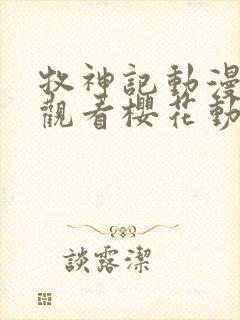 牧神記動漫
觀看櫻花動
談露潔